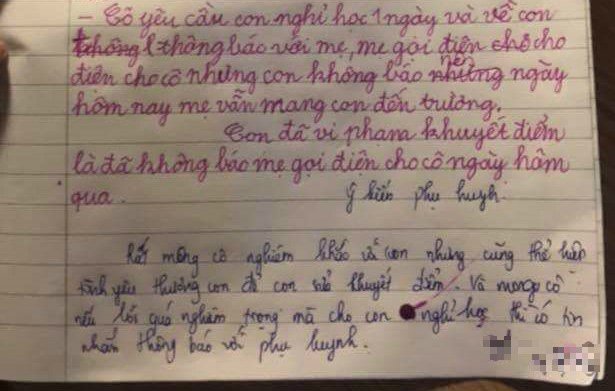 - Cô yêu cầu con nghỉ học 1 ngày và về con
không thông báo với mẹ, mẹ gọi điện cho
điện cho cô nhưng con không báo nên ngày
hôm nay mẹ vẫn mang con đến trường.
Con đã vi phạm khuyết điểm
là đã không báo mẹ gọi điện cho cô ngày hôm
qua.
Ý kiến phụ huynh.
Rất mong cô nghiêm khắc với con nhưng cũng thể hiện
tình yêu thương con để con sửa khuyết điểm. Và mong cô
nếu lỗi quá nghiêm trọng mà cho con nghỉ học thì có tin
nhắn thông báo với phụ huynh.